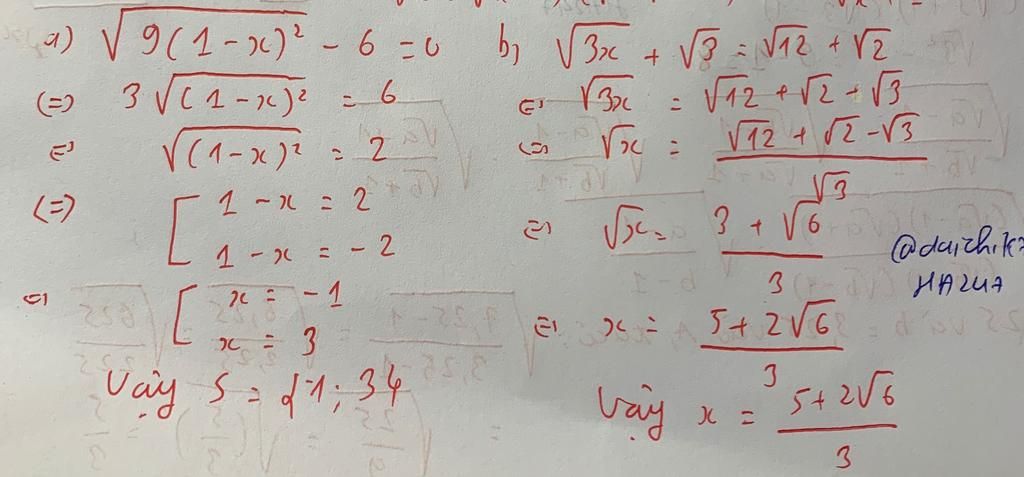 a) √(9(1-x)²) - 6 = 0
(=) 3√((1-x)²) = 6
(=) √((1-x)²) = 2
(=) [ 1 - x = 2
1 - x = -2
(=) [ x = -1
x = 3
Vậy S = {-1; 3}
b, √(3x) + √3 = √12 + √2
(=) √(3x) = √12 + √2 - √3
(=) √x = (√12 + √2 - √3)/√3
(=) √x = (3 + √6)/3
(=) x = (5 + 2√6)/3
Vậy x = (5 + 2√6)/3